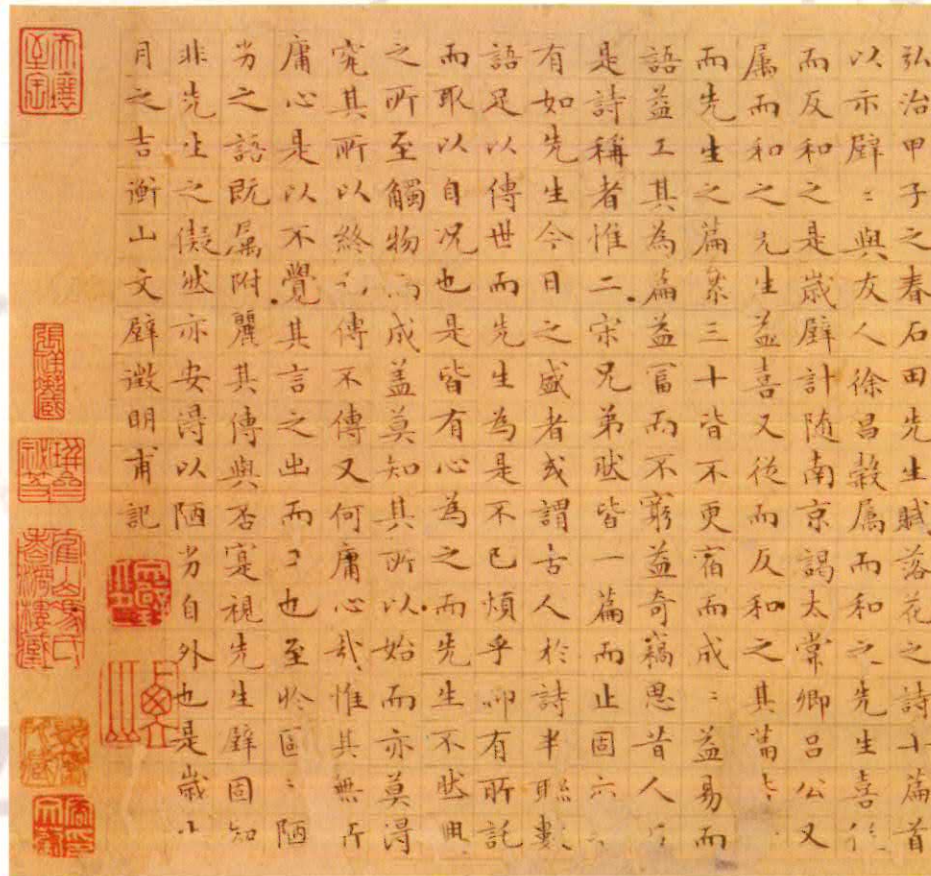 弘治甲子之春石田先生賦落花之詩十篇首
以示璧〻與友人徐昌穀属而和之先生喜從
而反和之是歲璧計随南京謁太常卿呂公又
属而和之先生益喜又從而反和之其篇
而先生之篇累三十皆不更宿而成〻益易而
語益工其為篇益富而不窮益奇竊思昔人
是詩稱者惟二宋兄弟然皆一篇而止固
有如先生今日之盛者或謂古人於詩半聯數
語足以傳世而先生為是不已煩乎抑有所託
而取以自况也是皆有心為之而先生不然興
之所至觸物而成盖莫知其所以始而亦莫得
究其所以終傳不傳又何庸心哉惟其無所
庸心是以不覺其言之出而工也至於區〻陋
劣之語既属附麗其傳與否寔視先生璧固知
非先生之儗然亦安得以陋劣自外也是歲十
月之吉衡山文璧徵明甫記